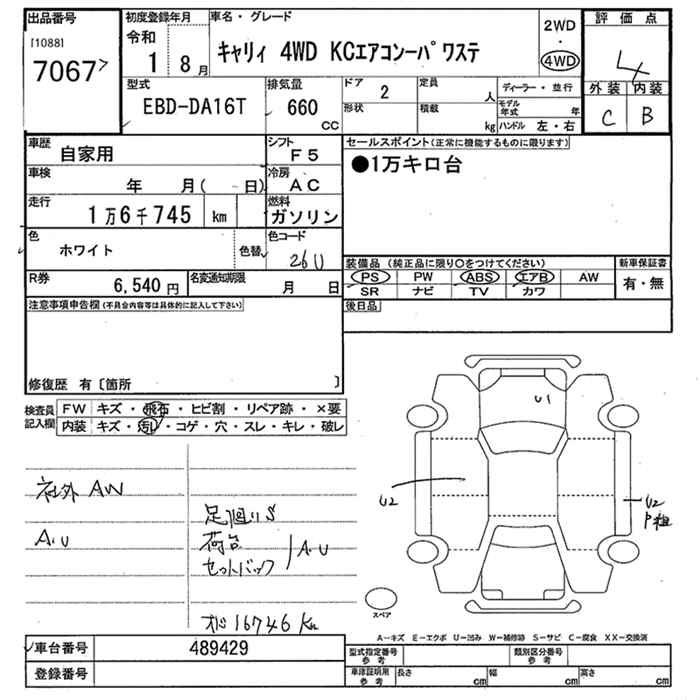 出品番号
[1088]
7067
初度登録年月
令和
1 8月
車名・グレード
キャリィ 4WD KCエアコンーパワステ
2WD
・
4WD
評価点
4
外装 内装
C B
型式
EBD-DA16T
排気量
660
CC
ドア 2
形状
定員 人
積載 kg
ディーラー・並行
モデル年式 年
ハンドル 左・右
車歴
自家用
シフト
F5
車検
年 月( 日)
冷房
AC
走行
1万6千745 km
燃料
ガソリン
色
ホワイト
色替
色コード
26U
R券
6,540 円
名変通知期限
月 日
セールスポイント(正常に機能するものに限ります)
●1万キロ台
装備品 (純正品に限り○をつけてください)
PS PW ABS エアB AW
SR ナビ TV カワ
新車保証書
有・無
後日品
注意事項申告欄(不具合内容等は具体的に記入して下さい)
修復歴 有〔箇所 〕
検査員記入欄
FW キズ・飛石・ヒビ割・リペア跡・×要
内装 キズ・汚れ・コゲ・穴・スレ・キレ・破レ
社外 AW
A.U
足廻りS
荷台
セットバック
A.U
オド 16746 Km
U1
U2
U2
スペア
A－キズ E－エクボ U－凹み W－補修跡 S－サビ C－腐食 XX－交換済
車台番号
489429
登録番号
型式指定番号
参考
類別区分番号
参考
車庫証明用
参考
長さ cm
幅 cm
高さ cm